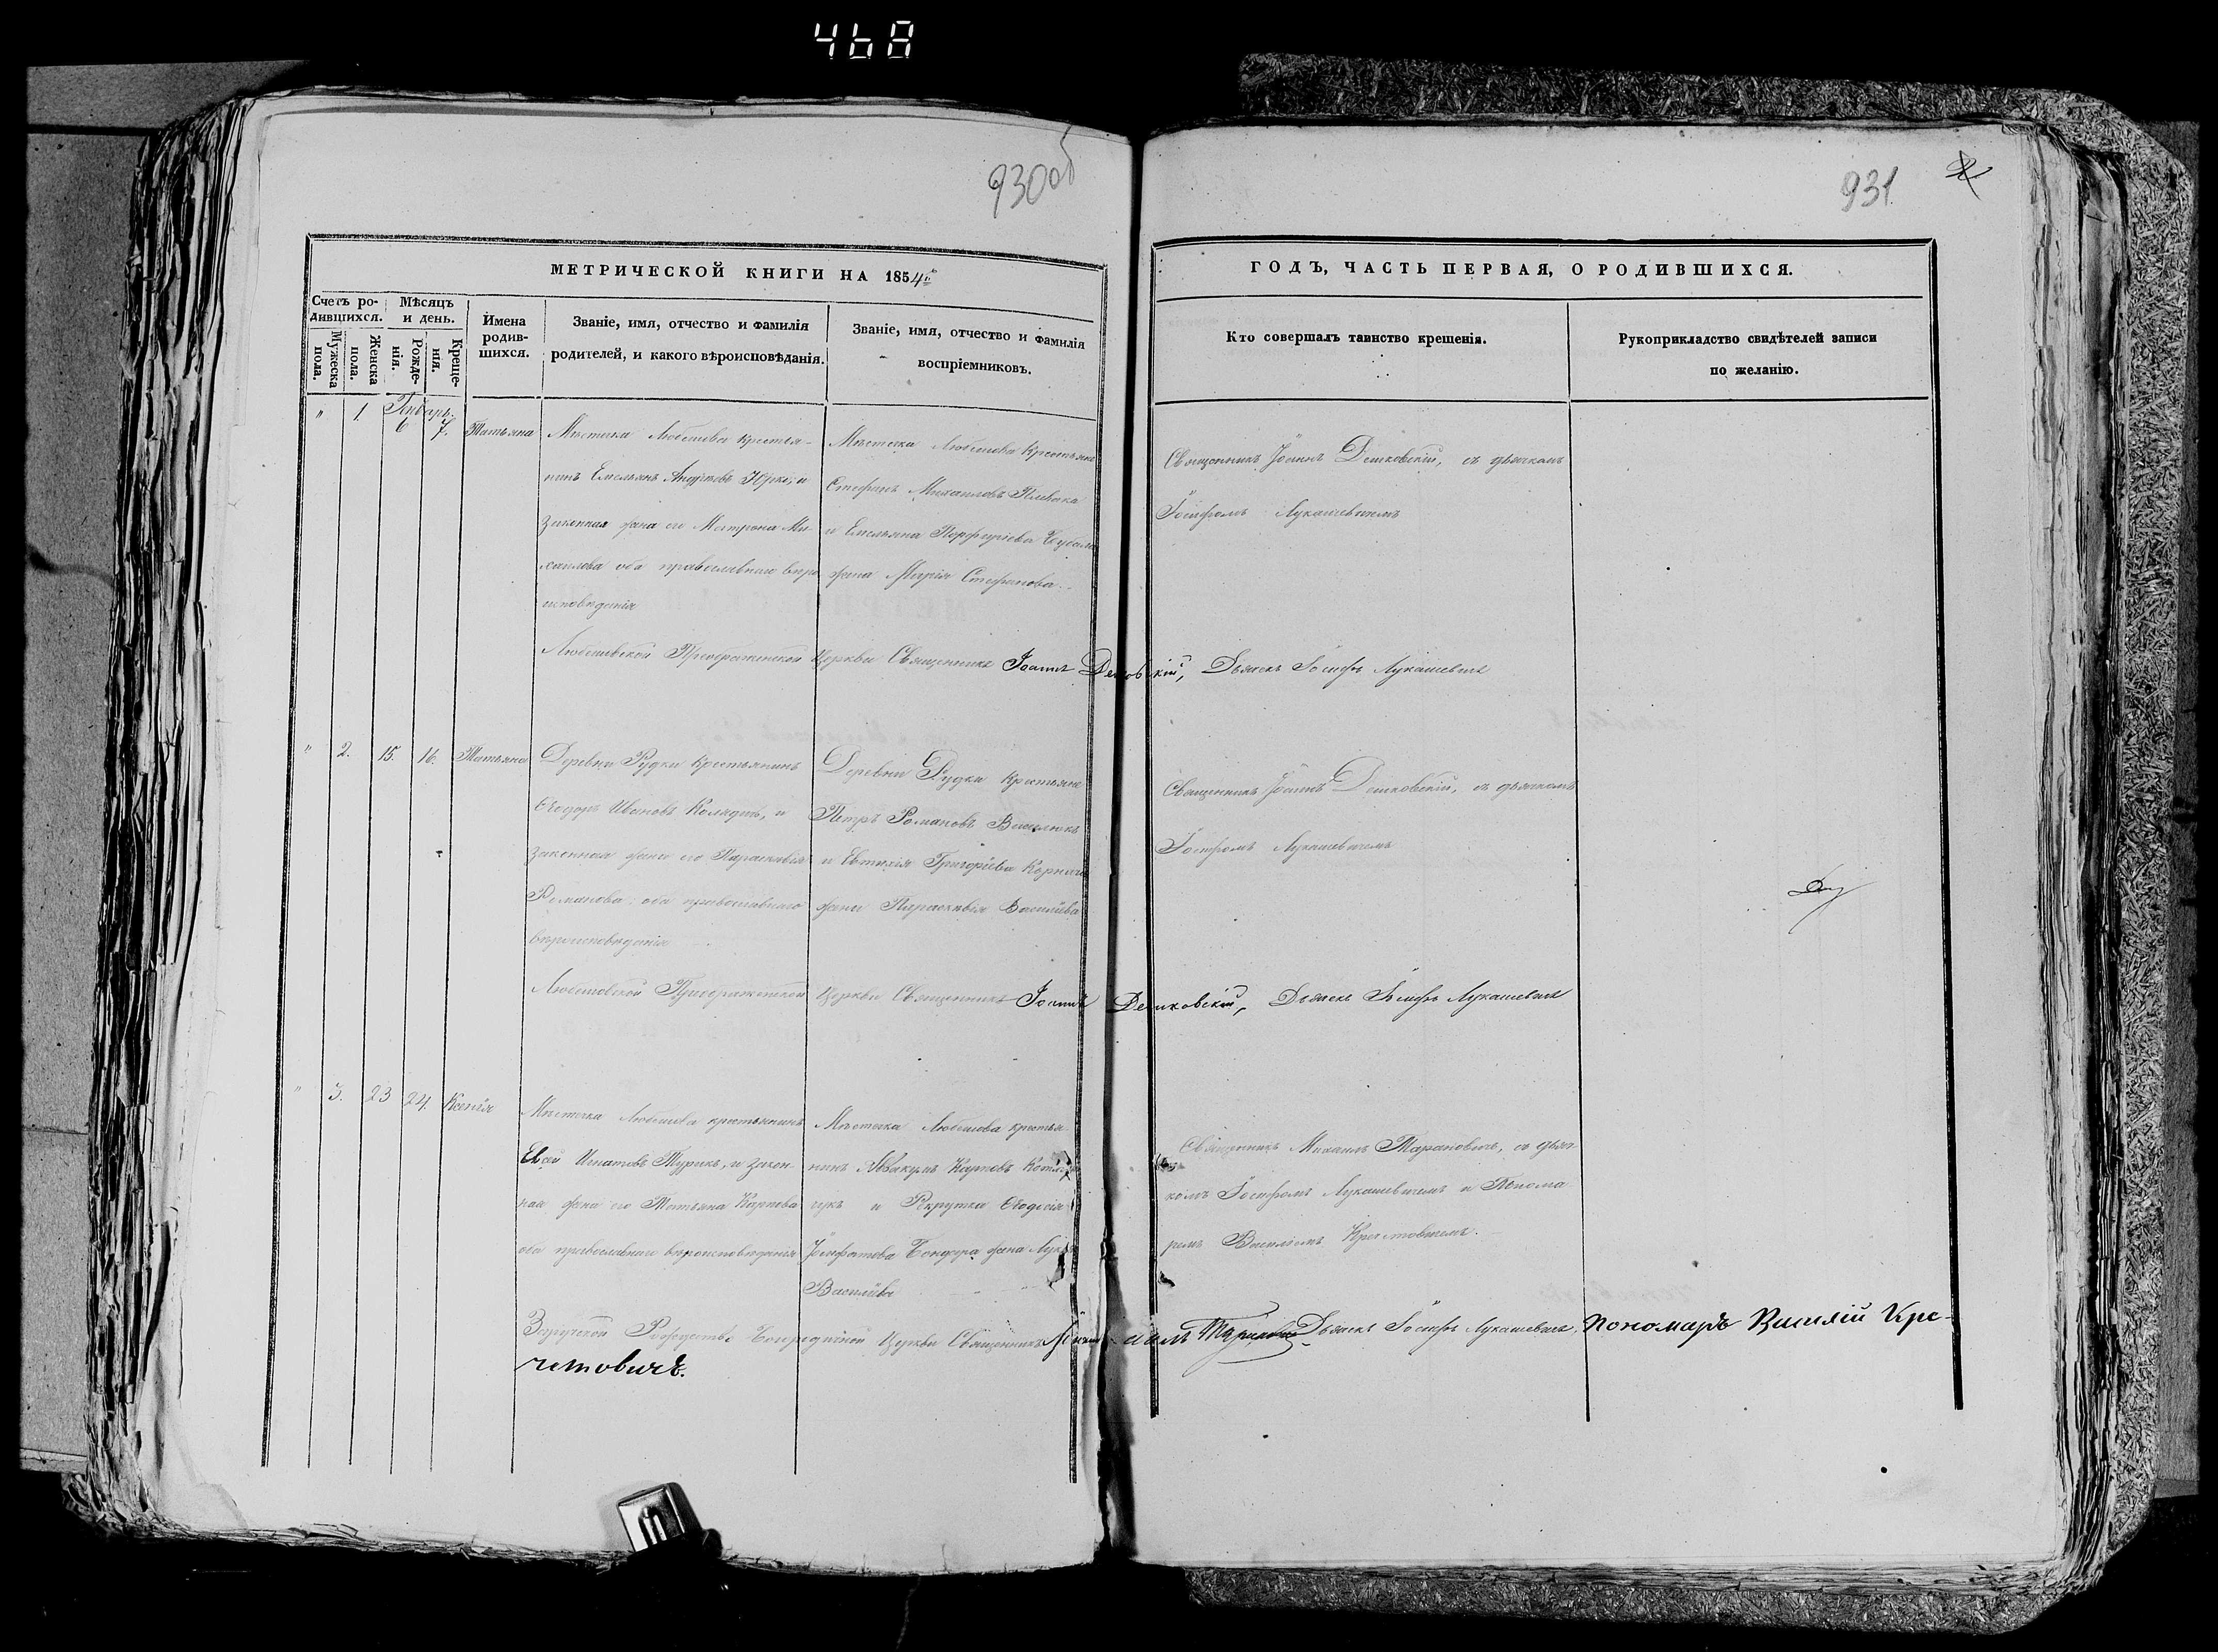 468
930об
931
МЕТРИЧЕСКОЙ КНИГИ НА 1854й
ГОДЪ, ЧАСТЬ ПЕРВАЯ, О РОДИВШИХСЯ.
Счетъ ро-
дившихся.
Мѣсяцъ
и день.
Мужеска
пола.
Женска
пола.
Рожде-
нія.
Креще-
нія.
Имена
родив-
шихся.
Званіе, имя, отчество и фамилія
родителей, и какого вѣроисповѣданія.
Званіе, имя, отчество и фамилія
воспріемниковъ.
Кто совершалъ таинство крещенія.
Рукоприкладство свидѣтелей записи
по желанію.
Январь.
" 1. 6 7. Татьяна
Мѣстечка Любешова крестья-
нинъ Емельянъ и
законная жена его Матрона Ми-
хаилова оба православнаго вѣро
исповѣданія
Мѣстечка Любешова Крестьяне
Стефанъ Михаиловъ
и Емельяна Порфиріева
жена Марія Стефанова
Священникъ Іоаннъ Демковскій, съ дьячкомъ
Іосифомъ Лукашевичемъ
Любешовской Преображенской Церкви Священникъ Іоаннъ Демковскій, Дьячекъ Іосифъ Лукашевичъ
" 2. 15. 16. Татьяна
Деревни Рудки Крестьянинъ
Ѳеодоръ Ивановъ и
законная жена его Параскевія
Романова, оба православнаго
вѣроисповѣданія
Деревни Рудки Крестьяне
Петръ Романовъ Василюкъ
и Евтихія Григоріева
жена Параскевія Василіева
Священникъ Іоаннъ Демковскій, съ дьячкомъ
Іосифомъ Лукашевичемъ
Любешовской Преображенской Церкви Священникъ Іоаннъ Демковскій, Дьячекъ Іосифъ Лукашевичъ
" 3. 23 24. Ксенія
Мѣстечка Любешова крестьянинъ
Игнатовъ Турикъ, и закон-
ная жена его Татьяна Карпова
оба православнаго вѣроисповѣданія
Мѣстечка Любешова крестья-
нинъ Аввакумъ Карповъ
и Рекрутка Ѳеодосія
Іосафатова Бондаря жена
Василіева
Священникъ Михаилъ Тарановичъ, съ дьяч
комъ Іосифомъ Лукашевичемъ и Понома
ремъ Василіемъ Кречетовичемъ.
Рождество Богородичной Церкви Священникъ Михаилъ Тарановичъ Дьячекъ Іосифъ Лукашевичъ, Пономарь Василій Кре-
четовичъ.